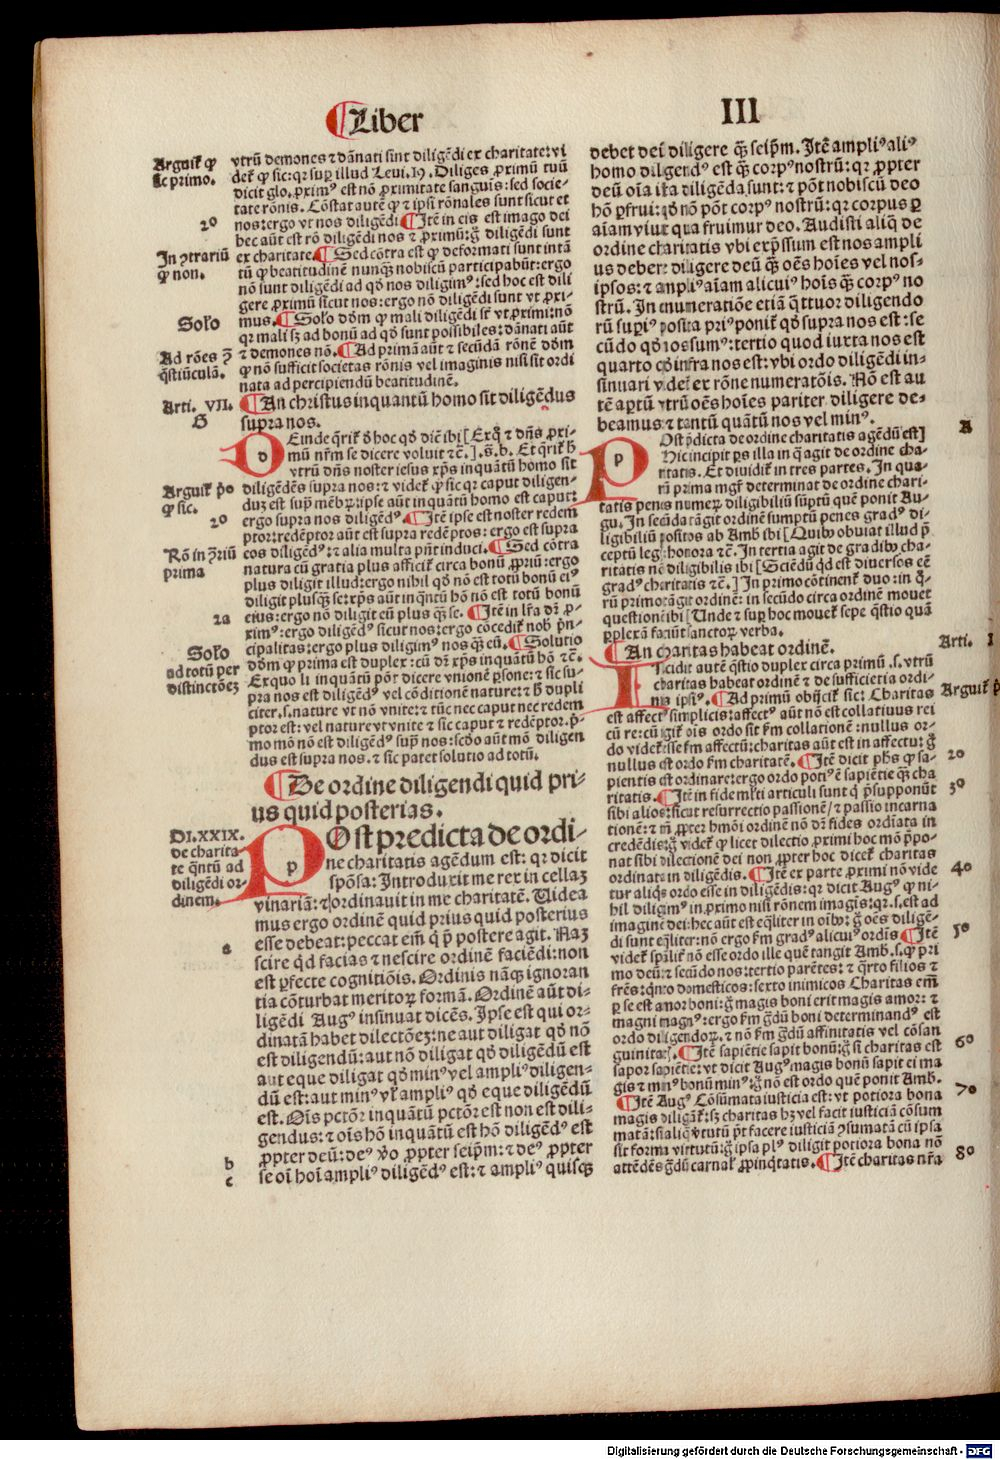 Liber
III
Arguit̃ ꝙ
sic primo.
vtrũ demones ⁊ dãnati sint diligẽdi ex charitate: vi
det̃ ꝙ sic: qꝛ suꝑ illud Leui. 19. Diliges ꝓximũ tuũ
dicit glo. ꝓxim⁹ est nõ ꝓximitate sanguis: sed socie-
tate rõnis. Cõstat autẽ ꝙ ⁊ ipsi rõnales sunt sicut et
2°
nos: ergo vt nos diligẽdi ¶ Itẽ in eis est imago dei
hec aũt est rõ diligẽdi nos ⁊ ꝓximũ: g̃ diligẽdi sunt
In ꝯtrariũ
ꝙ non.
ex charitate. ¶ Sed cõtra est ꝙ deformati sunt intã
tũ ꝙ beatitudinẽ nunqꝫ nobiscũ participabũt: ergo
nõ sunt diligẽdi ad qõ nos diligim⁹: sed hoc est dili
gere ꝓximũ sicut nos: ergo nõ diligẽdi sunt vt ꝓxi-
Solo
mus. ¶ Solo dõm ꝙ mali diligẽdi sĩt vt ꝓximi: nõ
qꝛ mali sꝫ ad bonũ ad qõ sunt possibiles: dãnati aũt
Ad rões ꝫ
q̃stiũculã.
⁊ demones nõ. ¶ Ad primã aũt ⁊ secũdã rõnẽ dõm
ꝙ nõ sufficit societas rõnis vel imaginis nisi sit ordi
nata ad percipiendũ beatitudinẽ.
Arti. VII.
G
¶ An christus inquantũ homo sit diligẽdus
supra nos.
DEinde q̃rit̃ ð hoc qõ diẽ ibi [Exq̃ ⁊ dñs ꝓxi-
mũ nr̃m se dicere voluit ⁊c̃.] .s. b. Et q̃rit̃ h̃
vtrũ dñs noster iesus xp̃s inquantũ homo sit
Arguit̃ p̃o
ꝙ sic.
diligẽdẽs supra nos: ⁊ videt̃ ꝙ sic qꝛ caput diligen-
duꝫ est suꝑ mẽbꝝ: ipse aũt inquãtũ homo est caput:
2°
ergo supra nos diligẽd⁹. ¶ Itẽ ipse est noster redem
ptor: redẽptor aũt est supra redẽptos: ergo est supra
Rõ in ꝯriũ
prima
eos diligẽd⁹: ⁊ alia multa pñt induci. ¶ Sed cõtra
natura cũ gratia plus afficit̃ circa bonũ ꝓpriũ: ergo
plus diligit illud: ergo nihil qõ nõ est totũ bonũ ei⁹
diligit plusqꝫ se: xp̃s aũt inq̃ntũ hõ nõ est totũ bonũ
2a
eius: ergo nõ diligit eũ plus qꝫ se. ¶ Itẽ in lr̃a dr̃ ꝓ-
xim⁹: ergo diligẽd⁹ sicut nos: ergo cõcedit̃ nob̃ p̃n-
Solo
ad totũ per
distinctõeꝫ
cipalitas: ergo plus diligim⁹ nos qꝫ eũ. ¶ Solutio
dõm ꝙ prima est duplex: cũ dr̃ xp̃s inquãtũ hõ ⁊c̃.
Exquo li inquãtũ põt dicere vnionẽ ꝑsone: ⁊ sic su-
pra nos est diligẽd⁹ vel cõditionẽ nature: ⁊ h̃ dupli
citer. s. nature vt nõ vnite: ⁊ tũc nec caput nec redem
ptor est: vel nature vt vnite ⁊ sic caput ⁊ redẽptor. p̃-
mo mõ nõ est diligẽd⁹ sup̃ nos: scðo aũt mõ diligen
dus est supra nos. ⁊ sic patet solutio ad totũ.
¶ De ordine diligendi quid pri-
us quid posterias.
DI. XXIX.
de charita-
te q̃ntũ ad
diligẽdi or-
dinem.
POst predicta de ordi-
ne charitatis agẽdum est: qꝛ dicit
spõsa: Introduxit me rex in cellaꝫ
vinariã: ⁊ ordinauit in me charitatẽ. Videa
mus ergo ordinẽ quid prius quid posterius
a
esse debeat: peccat em̃ q̃ p̃ postere agit. Naꝫ
scire qd̃ facias ⁊ nescire ordinẽ faciẽdi: non
est ꝑfecte cognitiõis. Ordinis nãqꝫ ignoran
tia cõturbat meritoꝝ formã. Ordinẽ aũt di-
ligẽdi Aug⁹ insinuat dicẽs. Ipse est qui or-
dinatã habet dilectõeꝫ: ne aut diligat qõ nõ
est diligendũ: aut nõ diligat qõ diligẽdũ est
aut eque diligat qõ min⁹ vel ampli⁹ diligen-
dũ est: aut min⁹ vl̃ ampli⁹ qõ eque diligẽdũ
est. Oĩs pctõr inquãtũ pctõr est non est dili-
gendus: ⁊ oĩs hõ inquãtũ est hõ diligẽd⁹ est
b
ꝓpter deũ: de⁹ ṽo ꝓpter seip̃m: ⁊ de⁹ ꝓpter
c
se oĩ hoĩ ampli⁹ diligẽd⁹ est: ⁊ ampli⁹ quisqꝫ
debet deũ diligere qꝫ seip̃m. Itẽ ampli⁹ ali⁹
homo diligend⁹ est qꝫ corp⁹ nostrũ: qꝛ ꝓpter
deũ oĩa ita diligẽda sunt: ⁊ põt nobiscũ deo
hõ ꝑfrui: qõ nõ põt corp⁹ nostrũ: qꝛ corpus ꝑ
aĩam viuit qua fruimur deo. Audisti aliq̃ de
ordine charitatis vbi exp̃ssium est nos ampli
us debere diligere deũ qꝫ oẽs hoĩes vel nos-
ipsos: ⁊ ampli⁹ aĩam alicui⁹ hoĩs qꝫ corp⁹ no
strũ. In enumeratiõe etiã q̃ttuor diligendo
rũ supi⁹ posita pri⁹ ponit̃ qõ supra nos est: se
cũdo qõ nos sum⁹: tertio quod iuxta nos est
quarto qõ infra nos est: vbi ordo diligẽdi in-
sinuari videt̃ ex rõne numeratõis. Nõ est au
tẽ aꝑtũ vtrũ oẽs hoĩes pariter diligere de-
beamus ⁊ tantũ quãtũ nos vel min⁹.
A
POst p̃dicta de ordine charitatis agẽdũ est]
Hic incipit ꝑs illa in q̃ agit de ordine cha-
ritatis. Et diuidit̃ in tres partes. In qua-
rũ prima mgr̃ determinat de ordine chari-
tatis penes numeꝝ diligibiliũ sũptũ quẽ ponit Au-
gu. In secũda tãgit ordinẽ sumptũ penes grad⁹ di-
ligibiliũ positos ab Amb̃ ibi [Quibꝰ obuiat illud p̃
ceptũ legꝭ: honora ⁊c̃. In tertia agit de gradibꝰ cha-
ritatis nõ diligibilis ibi [Sciẽdũ qd̃ est diuersos eẽ
grad⁹ charitatis ⁊c̃.] In primo cõtinent̃ duo: in q̃-
rũ primo tãgit ordinẽ: in secũdo circa ordinẽ mouet
questionẽ ibi [Unde ⁊ suꝑ hoc mouet̃ sepe q̃stio quã
ꝑplexã faciũt sanctoꝝ verba.
Arti. I
¶ An charitas habeat ordinẽ.
INcidit autẽ q̃stio duplex circa primũ .s. vtrũ
charitas habeat ordinẽ ⁊ de sufficiẽtia ordi-
Arguit̃ p̃
nis ipsi⁹. ¶ Ad primũ obijcit̃ sic: Charitas
est affect⁹ simplicis: affect⁹ aũt nõ est collatiuus rei
cũ re: cũ igit̃ oĩs ordo sit fm̃ collationẽ: nullus or-
do videt̃ esse fm̃ affectũ: charitas aũt est in affectu: g̃
2°
nullus est ordo fm̃ charitatẽ. ¶ Itẽ dicit ph̃s ꝙ sa-
pientis est ordinare: ergo ordo poti⁹ ẽ sapiẽtie qꝫ cha
3°
ritatis. ¶ Itẽ in fide ml̃ti articuli sunt q̃ p̃supponũt
sibi alios: sicut resurrectio passionẽ / ⁊ passio incarna
tionẽ: ⁊ tñ ꝓpter hmõi ordinẽ nõ dr̃ fides ordĩata in
credẽdis: g̃ videt̃ ꝙ licet dilectio ꝓximi hoc mõ p̃po-
nat sibi dilectionẽ dei non ꝓpter hoc dicet̃ charitas
4°
ordinata in diligẽdis. ¶ Itẽ ex parte ꝓximi nõ vide
tur aliqs ordo esse in diligẽdis: qꝛ dicit Aug⁹ ꝙ ni-
hil diligim⁹ in ꝓximo nisi rõnem imagĩs: qꝛ .s. est ad
imaginẽ dei: hec aũt est eq̃liter in oĩbꝰ: g̃ oẽs diligẽ-
5°
di sunt eq̃liter: nõ ergo fm̃ grad⁹ alicui⁹ ordĩs ¶ Itẽ
videt̃ sp̃alit̃ nõ esse ordo ille quẽ tangit Amb. s. ꝙ pri
mo deũ: ⁊ secũdo nos: tertio parẽtes: ⁊ q̃rto filios ⁊
fr̃es: q̃nto domesticos: sexto inimicos Charitas em̃
ꝑ se est amor boni: g̃ magis boni erit magis amor: ⁊
magni magn⁹: ergo fm̃ g̃dũ boni determinand⁹ est
ordo diligendoꝝ. ⁊ nõ fm̃ g̃dũ affinitatis vel cõsan
6°
guinitatꝭ. ¶ Itẽ sapiẽtie sapit bonũ: g̃ si charitas est
sapor sapiẽtie: vt dicit Aug⁹ magis bonũ sapit ei ma
gis ⁊ min⁹ bonũ min⁹: g̃ nõ est ordo quẽ ponit Amb.
7°
¶ Itẽ Aug⁹ Cõsũmata iusticia est: vt potiora bona
magis diligãt̃: sꝫ charitas hꝫ vel facit iusticiã cõsum
matã: si aliq̃ v̓tutũ p̃t facere iusticiã ꝯsumatã cũ ipsa
sit forma virtutũ: g̃ ipsa pl⁹ diligit potiora bona nõ
8°
attẽdẽs g̃dũ carnal̃ ꝓpinq̃tatis. ¶ Itẽ charitas nr̃a
Digitalisierung gefördert durch die Deutsche Forschungsgemeinschaft - DFG